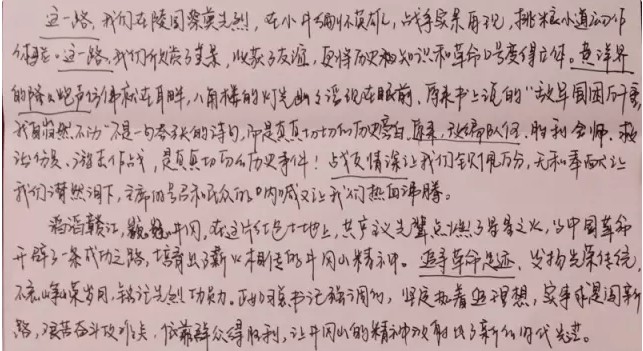 这一路，我们在陵园祭奠先烈，在小井缅怀英雄，战争实景再现，挑粮小道
这一路，我们欣赏了美景，收获了友谊，更将历史知识和革命口号变得立体。黄洋界
的隆隆炮声仿佛就在耳畔，八角楼的灯光幽幽浮现在眼前，原来书上说的“敌军围困万千重
我自岿然不动”不是一句夸张的诗句，而是真真切切的历史旁白。原来，胜利会师、救
治伤员、游击作战，是真真切切的历史事件！战友情深让我们钦佩万分，让
我们潸然泪下，主席的号召和民众的呐喊又让我们热血沸腾。
滔滔赣江，巍巍井冈，在这片红色土地上，共产主义先辈点燃了星星之火，为中国革命
开辟了一条成功之路，培育出了薪火相传的井冈山精神。追寻革命足迹，发扬光荣传统，
不忘峥嵘岁月，铭记先烈功勋。正如习总书记强调的，坚定执着追理想，实事求是闯新
路，艰苦奋斗攻难关，依靠群众得胜利，让井冈山的精神放射出了新的时代光芒。